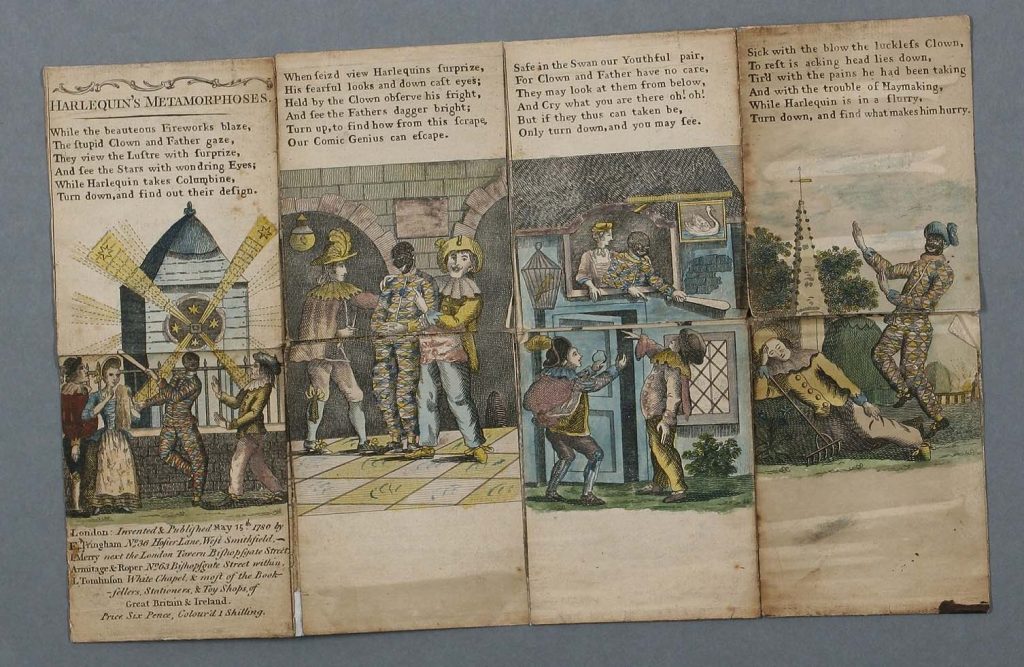 HARLEQUIN'S METAMORPHOSES.
While the beauteous Fireworks blaze,
The ſtupid Clown and Father gaze,
They view the Luſtre with ſurprize,
And ſee the Stars with wondring Eyes;
While Harlequin takes Columbine,
Turn down, and find out their deſign.
London: Invented & Publiſhed May 15th 1780 by
Tringham No. 36 Hoſier Lane, Weſt Smithfield,
Merry next the London Tavern Biſhopſgate Street
Armitage & Roper No. 63 Biſhopſgate Street within,
L Tomlinſon White Chapel, & moſt of the Book-
-ſellers, Stationers, & Toy Shops, of
Great Britain & Ireland.
Price Six Pence, Colour'd 1 Shilling.
When ſeiz'd view Harlequins ſurprize,
His fearful looks and down caſt eyes;
Held by the Clown obſerve his fright,
And ſee the Fathers dagger bright;
Turn up, to find how from this ſcrape,
Our Comic Genius can eſcape.
Safe in the Swan our Youthful pair,
For Clown and Father have no care,
They may look at them from below,
And Cry what you are there oh! oh!
But if they thus can taken be,
Only turn down, and you may ſee.
Sick with the blow the luckleſs Clown,
To reſt is acking head lies down,
Tir'd with the pains he had been taking
And with the trouble of Haymaking,
While Harlequin is in a flurry,
Turn down, and find what makes him hurry.